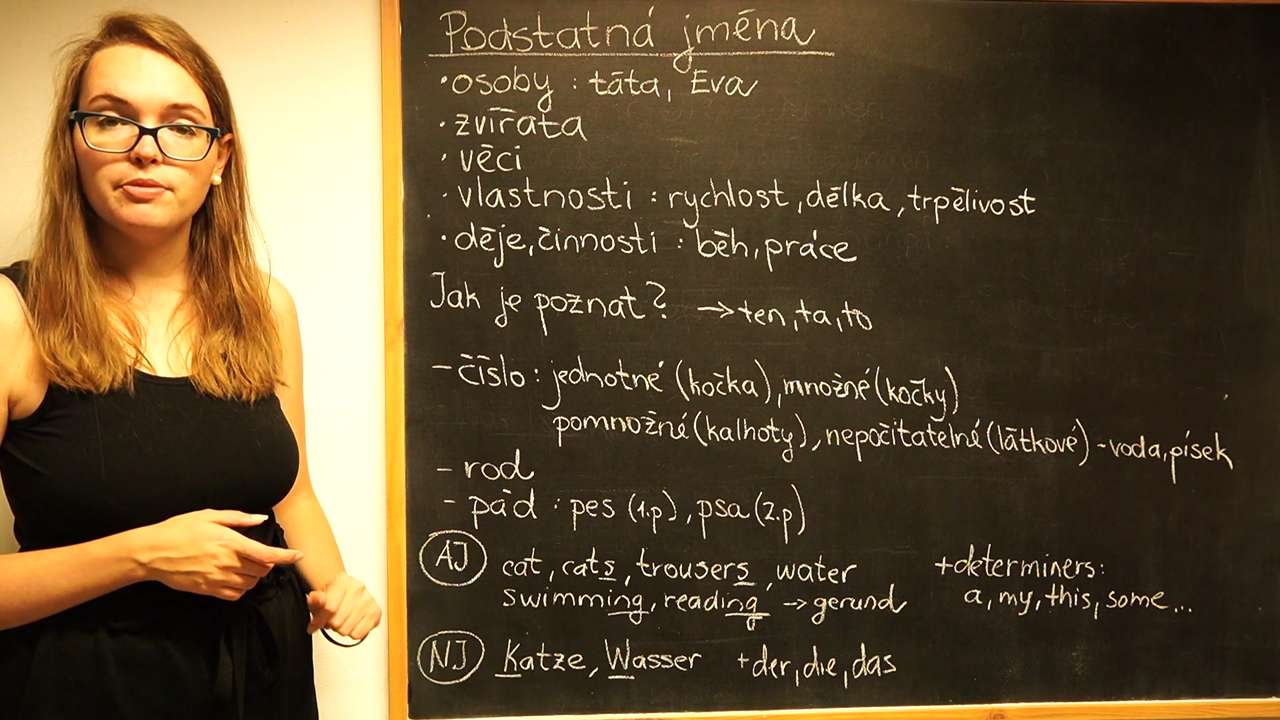 Podstatná jména
• osoby : táta, Eva
• zvířata
• věci
• vlastnosti : rychlost, délka, trpělivost
• děje, činnosti : běh, práce
Jak je poznat? → ten, ta, to
- číslo : jednotné (kočka), množné (kočky)
pomnožné (kalhoty), nepočitatelné (látkové) - voda, písek
- rod
- pád : pes (1.p), psa (2.p)
AJ cat, cats, trousers, water + determiners:
swimming, reading → gerund a, my, this, some...
NJ Katze, Wasser + der, die, das